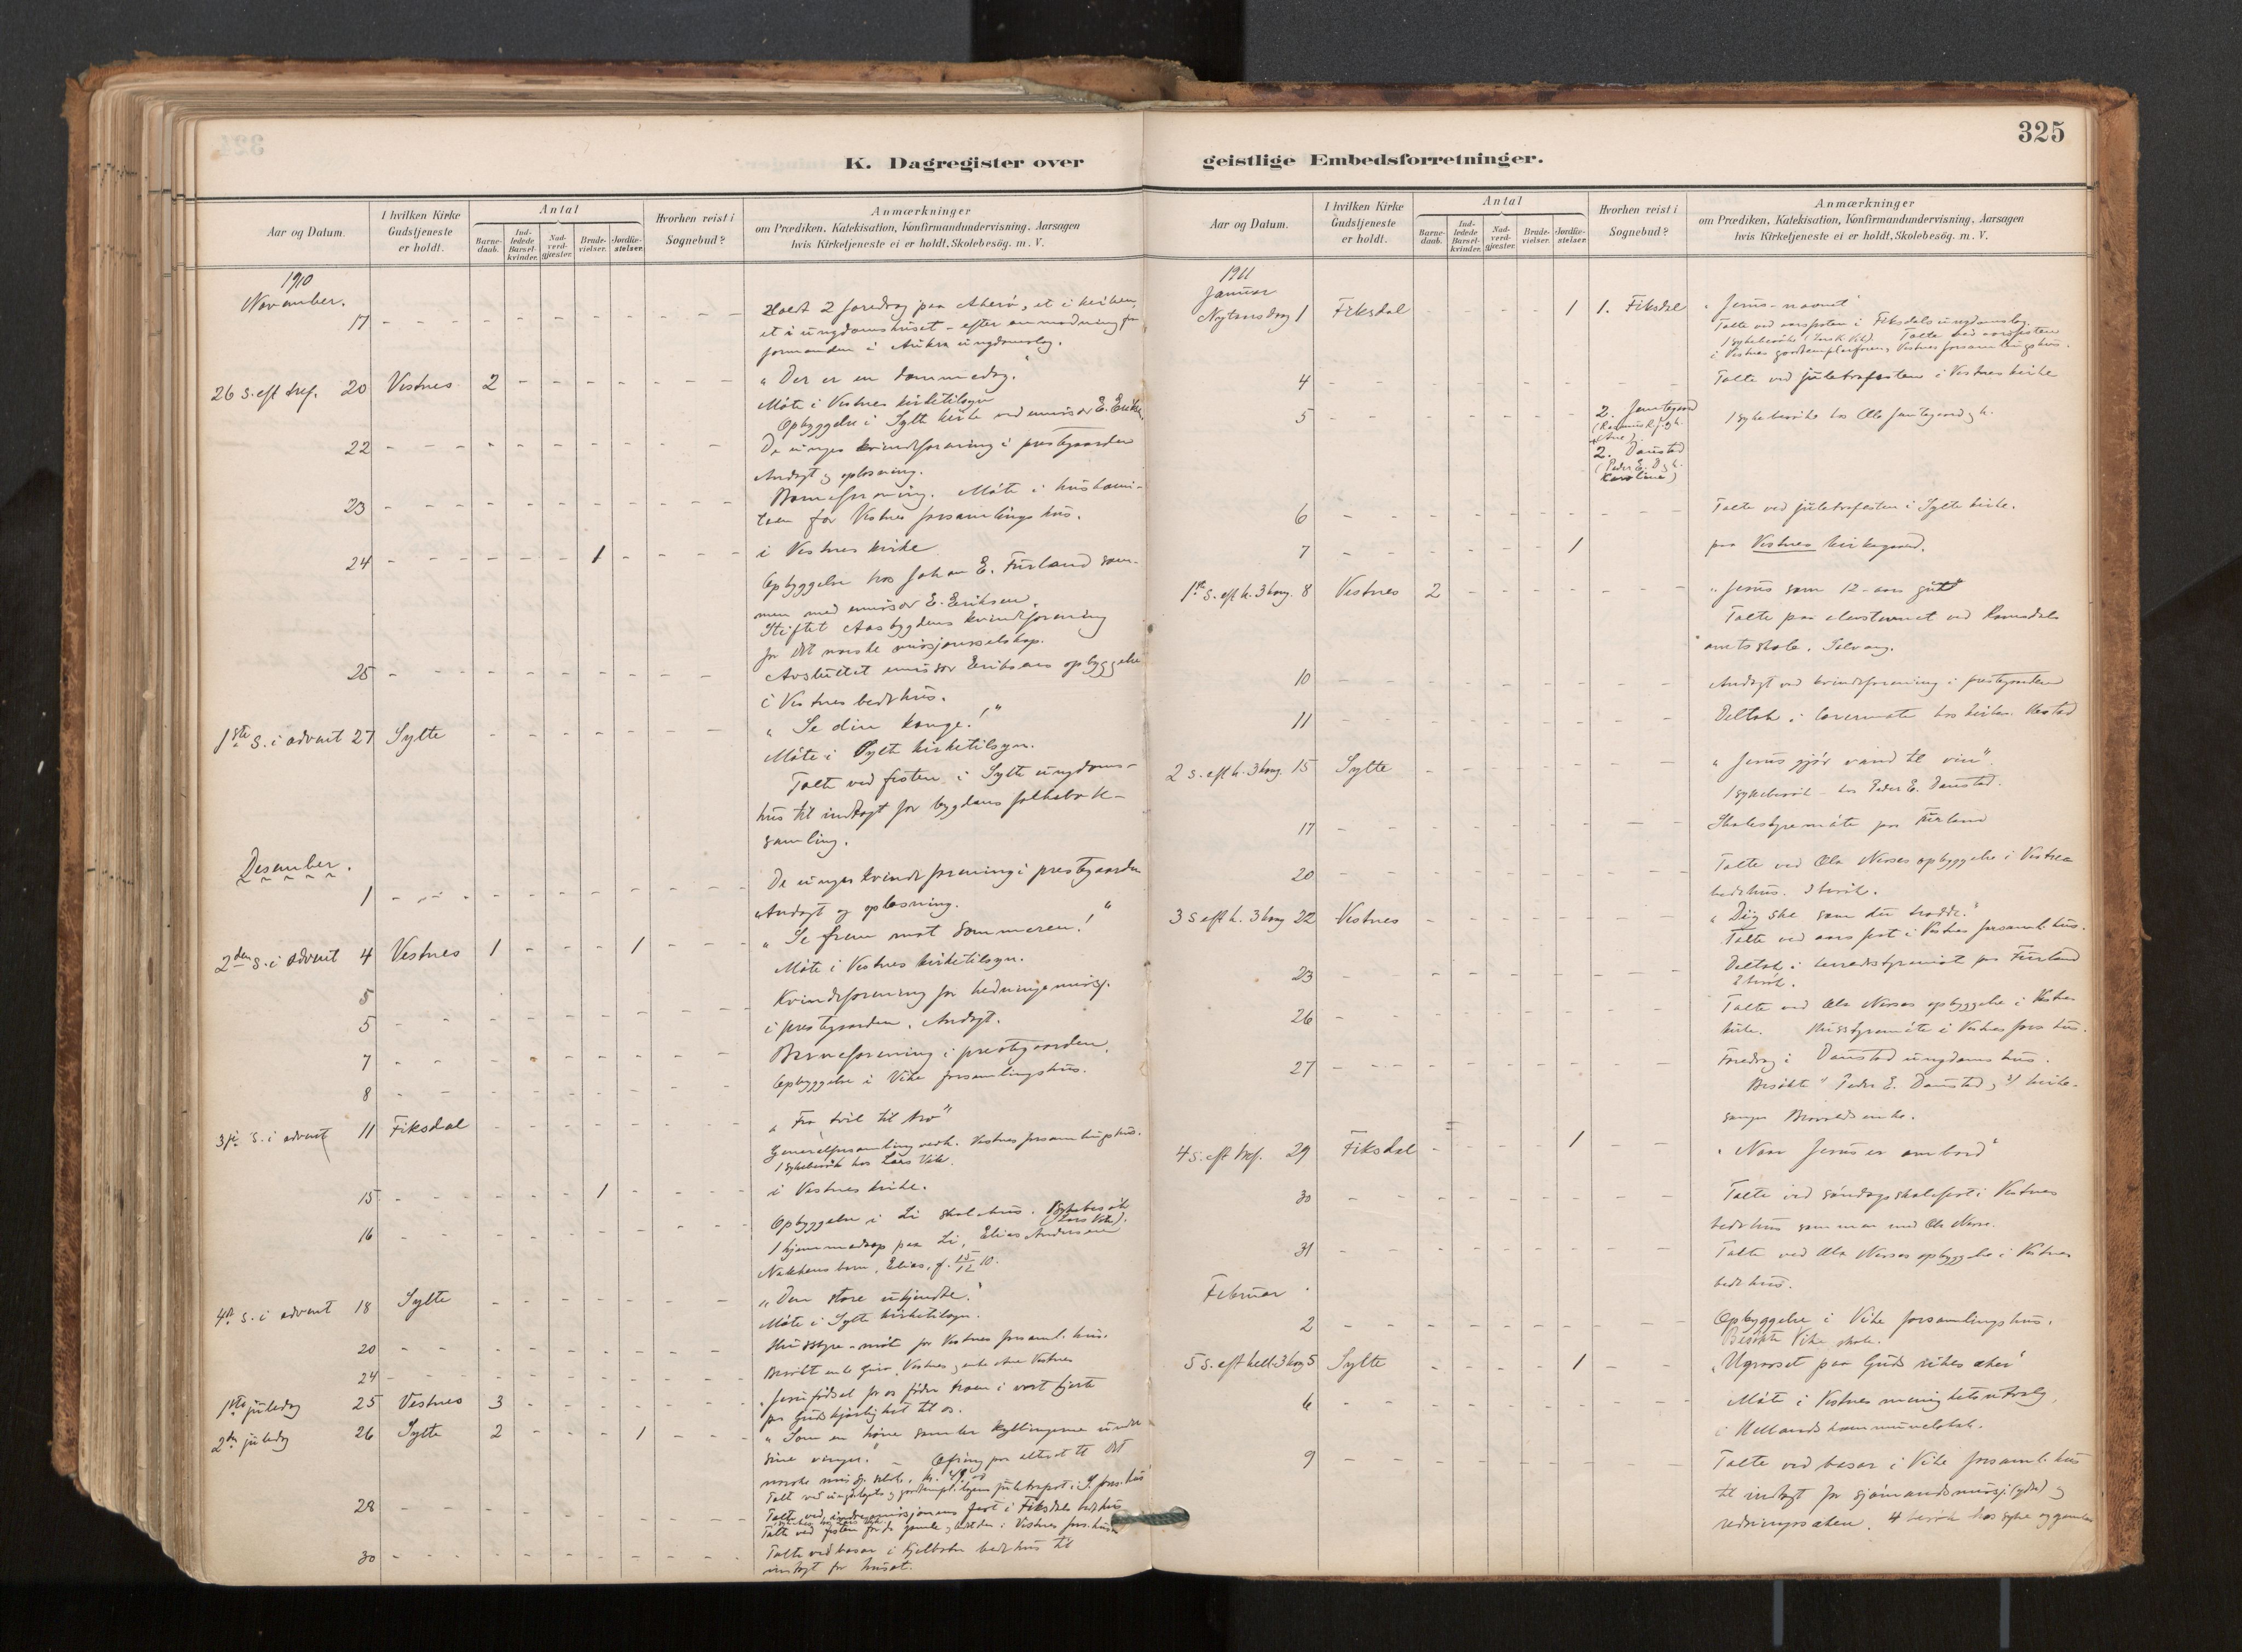 325
K. Dagregister over
Aar og Datum.
I hvilken Kirke
Gudstjeneste
er holdt.
Antal
Barne-
daab.
Ind-
ledede
Barsel-
kvinder.
Nad-
verd-
gjæster.
Brude-
vielser.
Jordfæ-
stelser.
Hvorhen reist i
Sognebud?
Anmærkninger
om Prædiken, Katekisation, Konfirmandundervisning, Aarsagen
hvis Kirketjeneste ei er holdt, Skolebesög. m. V.
1910
November.
17 Holdt 2 foredrag paa Akerø, et i kirken,
et i ungdomshuset - efter anmodning fra
formanden i Aukra ungdomslag.
26 s. eft tref. 20 Vestnes 2 „Der er en dommedag."
Møte i Vestnes kirketilsyn
Opbyggelse i Sylte kirke ved emissør E. Eriksen
22 De unges kvindeforening i prestegaarden
Andagt og oplæsning.
23 Barneforening. Møte i huskomi-
teen for Vestnes forsamlingshus.
24 1 i Vestnes kirke
Opbyggelse hos Johan E. Furland sam-
men med emissør E. Eriksen.
Stiftet Aasbygdens kvindeforening
for det norske misjonsselskap.
25 Avsluttet emissør Eriksens opbyggelse
i Vestnes bedehus.
1ste s. i advent 27 Sylte „Se din konge!"
Møte i Sylte kirketilsyn.
Talte ved festen i Sylte ungdoms-
hus til indtægt for bygdens folkebok-
samling.
Desember.
1 De unges kvindeforening i prestegaarden
Andagt og oplæsning.
2den s. i advent 4 Vestnes 1 1 „Se frem mot sommeren!"
Møte i Vestnes kirketilsyn.
5 Kvindeforening for hedningemisj.
5 i prestegaarden. Andagt.
7 Barneforening i prestegaarden.
8 Opbyggelse i Vike forsamlingshus.
3je s. i advent 11 Fiksdal „Fra tvil til tro"
Generalforsamling vedk. Vestnes forsamlingshus.
1 sykebesøk hos Lars Vike.
15 1 i Vestnes kirke.
16 Opbyggelse i Li skolehus. 1 sykebesøk
(Lars Vike).
1 hjemmedaap paa Li, Elias Andersen
Nakkens barn, Elias, f. 15/12 10.
4de s. i advent 18 Sylte „Den store ukjendte."
Møte i Sylte kirketilsyn.
20 Husstyre-møte for Vestnes forsaml. hus.
24 Besøkt enke Guro Vestnes og enke Ane Vestnes
1ste juledag 25 Vestnes 3 Jesu fødsel for os føder troen i vort hjerte
paa Guds kjærlighet til os.
2den juledag 26 Sylte 2 1 „Som en høne samler kyllingerne under
sine vinger." - Ofring paa alteret til det
norske misj. selsk.
28 Talte ved indremisjonens fest i Fiksdals bedehus
Talte ved festen for de gamle i Vestnes fors. hus
30 Talte ved basar i Kjelbotn bedehus til
indtægt for huset.
geistlige Embedsforretninger.
Aar og Datum.
I hvilken Kirke
Gudstjeneste
er holdt.
Antal
Barne-
daab.
Ind-
ledede
Barsel-
kvinder.
Nad-
verd-
gjæster.
Brude-
vielser.
Jordfæ-
stelser.
Hvorhen reist i
Sognebud?
Anmærkninger
om Prædiken, Katekisation, Konfirmandundervisning, Aarsagen
hvis Kirketjeneste ei er holdt, Skolebesög. m. V.
1911
Januar
Nytaarsdag 1 Fiksdal 1 1. Fiksdal „Jesus-navnet"
Talte ved aarsfesten i Fiksdals ungdomslag.
1 sykebesøk (Lars K. Vik). Talte ved aarsfesten
i Vestnes goodtemplarforening Vestnes forsamlingshus.
4 Talte ved juletrefesten i Vestnes kirke
5 2. Jemtegaard
(Rasmus R. J. g.h.
Ane).
2. Daustad
(Peder E. D. g.h.
Karoline)
1 sykebesøk hos Ole Jemtegaard g.h.
6 Talte ved juletrefesten i Sylte kirke.
7 1 paa Vestnes kirkegaard.
1ste s. eft h. 3 kong. 8 Vestnes 2 „Jesus som 12-aars gut"
Talte paa elevstevnet ved Romsdals
amtsskole, Solvang.
10 Andagt ved kvindeforening i prestegaarden
11 Deltok i lærermøte hos kirkes. Kestad
2 s. eft h. 3 kong. 15 Sylte „Jesus gjør vand til vin".
1 sykebesøk - hos Peder E. Daustad.
17 Skolestyremøte paa Furland
20 Talte ved Ola Nerses opbyggelse i Vestnes
bedehus. 3 besøk.
3 s. eft h. 3 kong 22 Vestnes „Dig ske som du trodde."
Talte ved aarsfest i Vestnes forsaml. hus.
23 Deltok i herredsstyremøt paa Furland
2 besøk.
26 Talte ved Ola Nerses opbyggelse i Vestnes
kirke. Husstyremøte i Vestnes fors hus.
27 Foredrag i Daustad ungdomshus.
Besøkte Peder E. Daustad, og kirke-
sanger Brovolds enke.
4 s. eft tref. 29 Fiksdal 1 „Naar Jesus er ombord"
30 Talte ved søndagsskolefest i Vestnes
bedehus sammen med Ola Nerse.
31 Talte ved Ola Nerses opbyggelse i Vestnes
bedehus.
Februar
2 Opbyggelse i Vike forsamlingshus.
Besøkte Vike skole.
5 s. eft hell. 3 kong 5 Sylte 1 „Ugræsset paa Guds rikes aker"
6 Møte i Vestnes menighetsutvalg,
i Hellands kommunelokal.
9 Talte ved basar i Vike forsaml. hus
til indtægt for sjømandsmisj. (ydre) og
redningssaken. 4 besøk hos syke og gamle